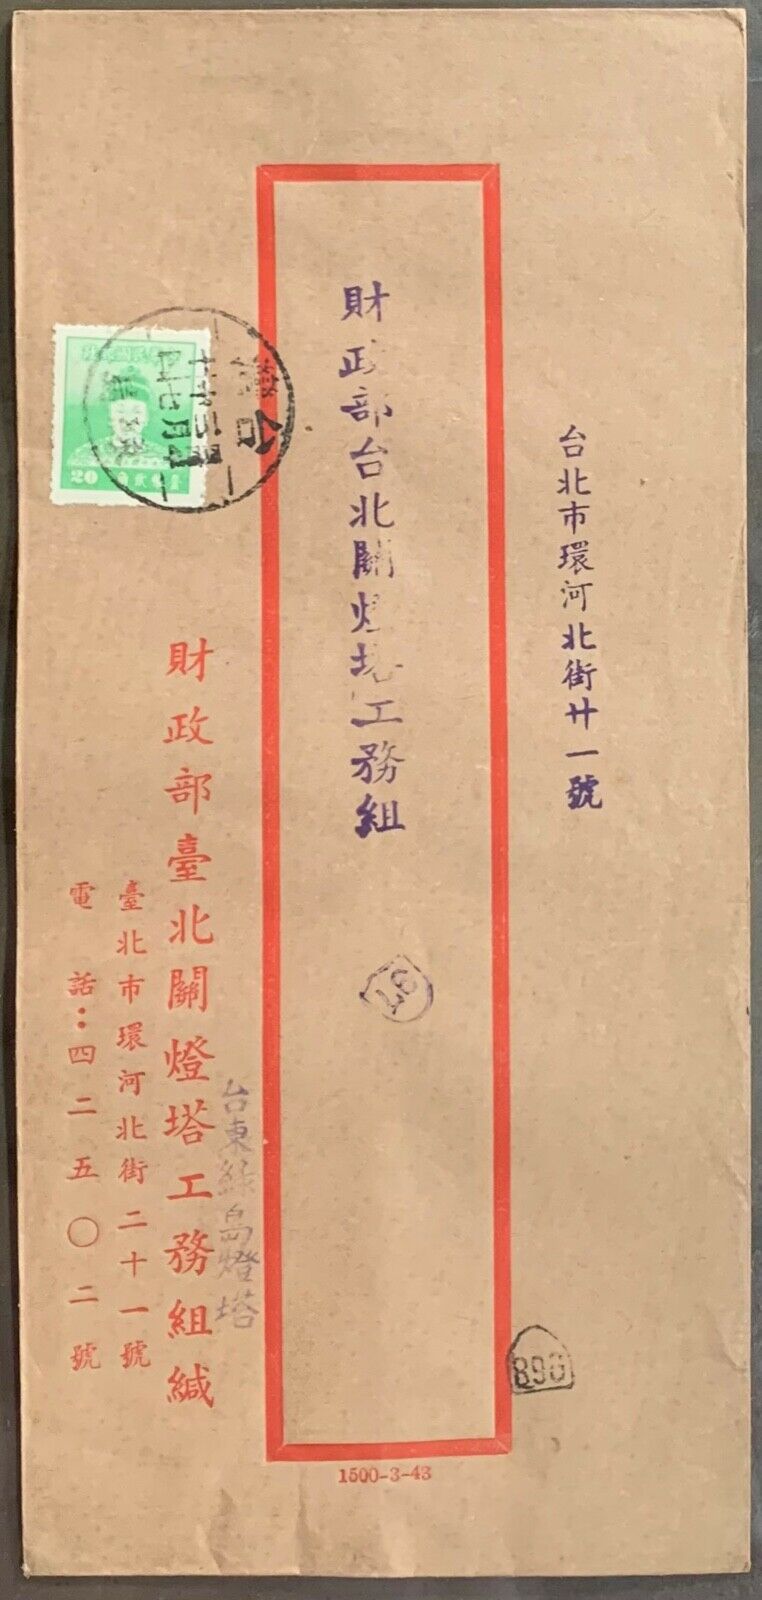 台北市環河北街廿一號
財政部台北關燈塔工務組
台東綠島燈塔
財政部臺北關燈塔工務組緘
臺北市環河北街二十一號
電話：四二五〇二號
20
台灣
1500-3-43